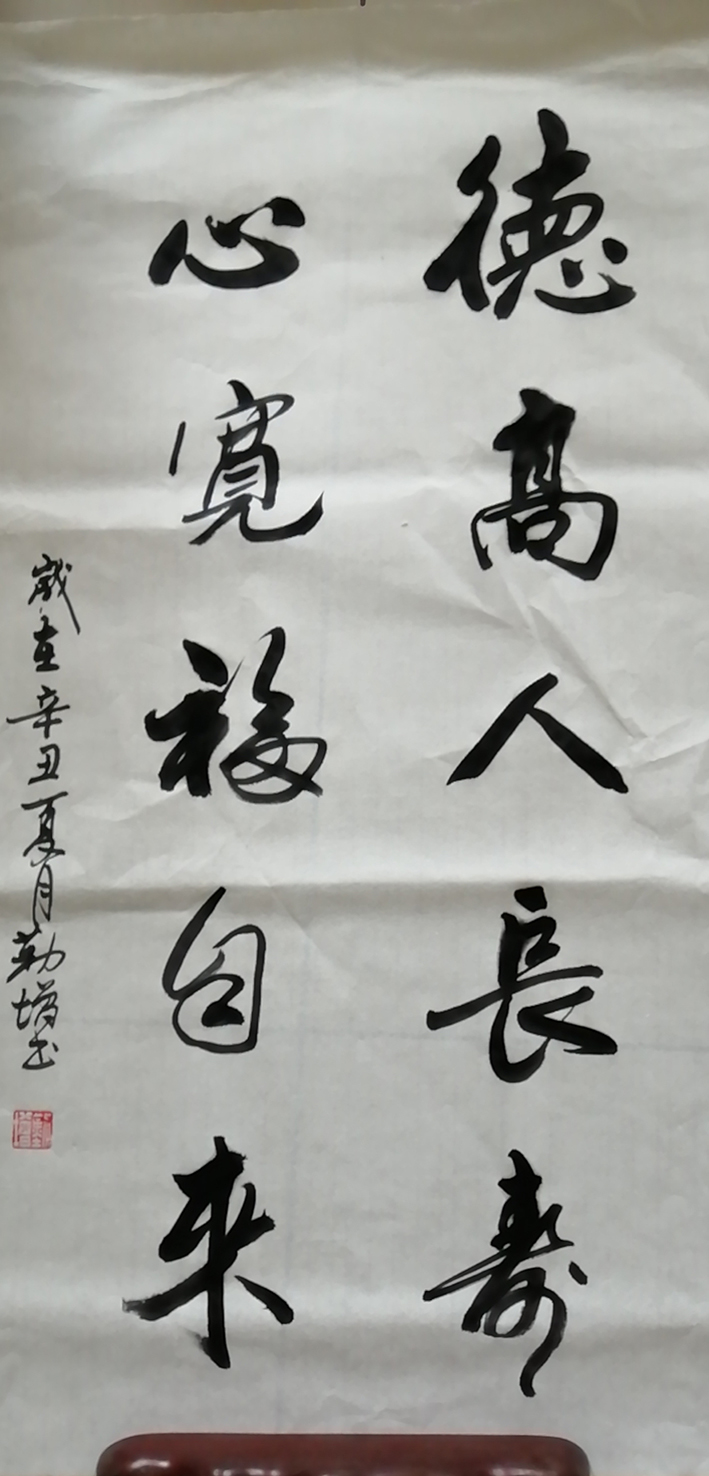 德高人長壽
心寬福自来
歲在辛丑夏月勤增书